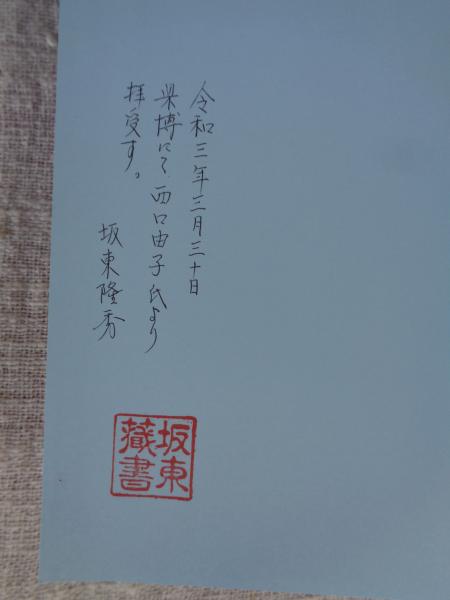 令和三年三月三十日
県博にて西口由子氏より
拝受す。
坂東隆秀
坂東
蔵書